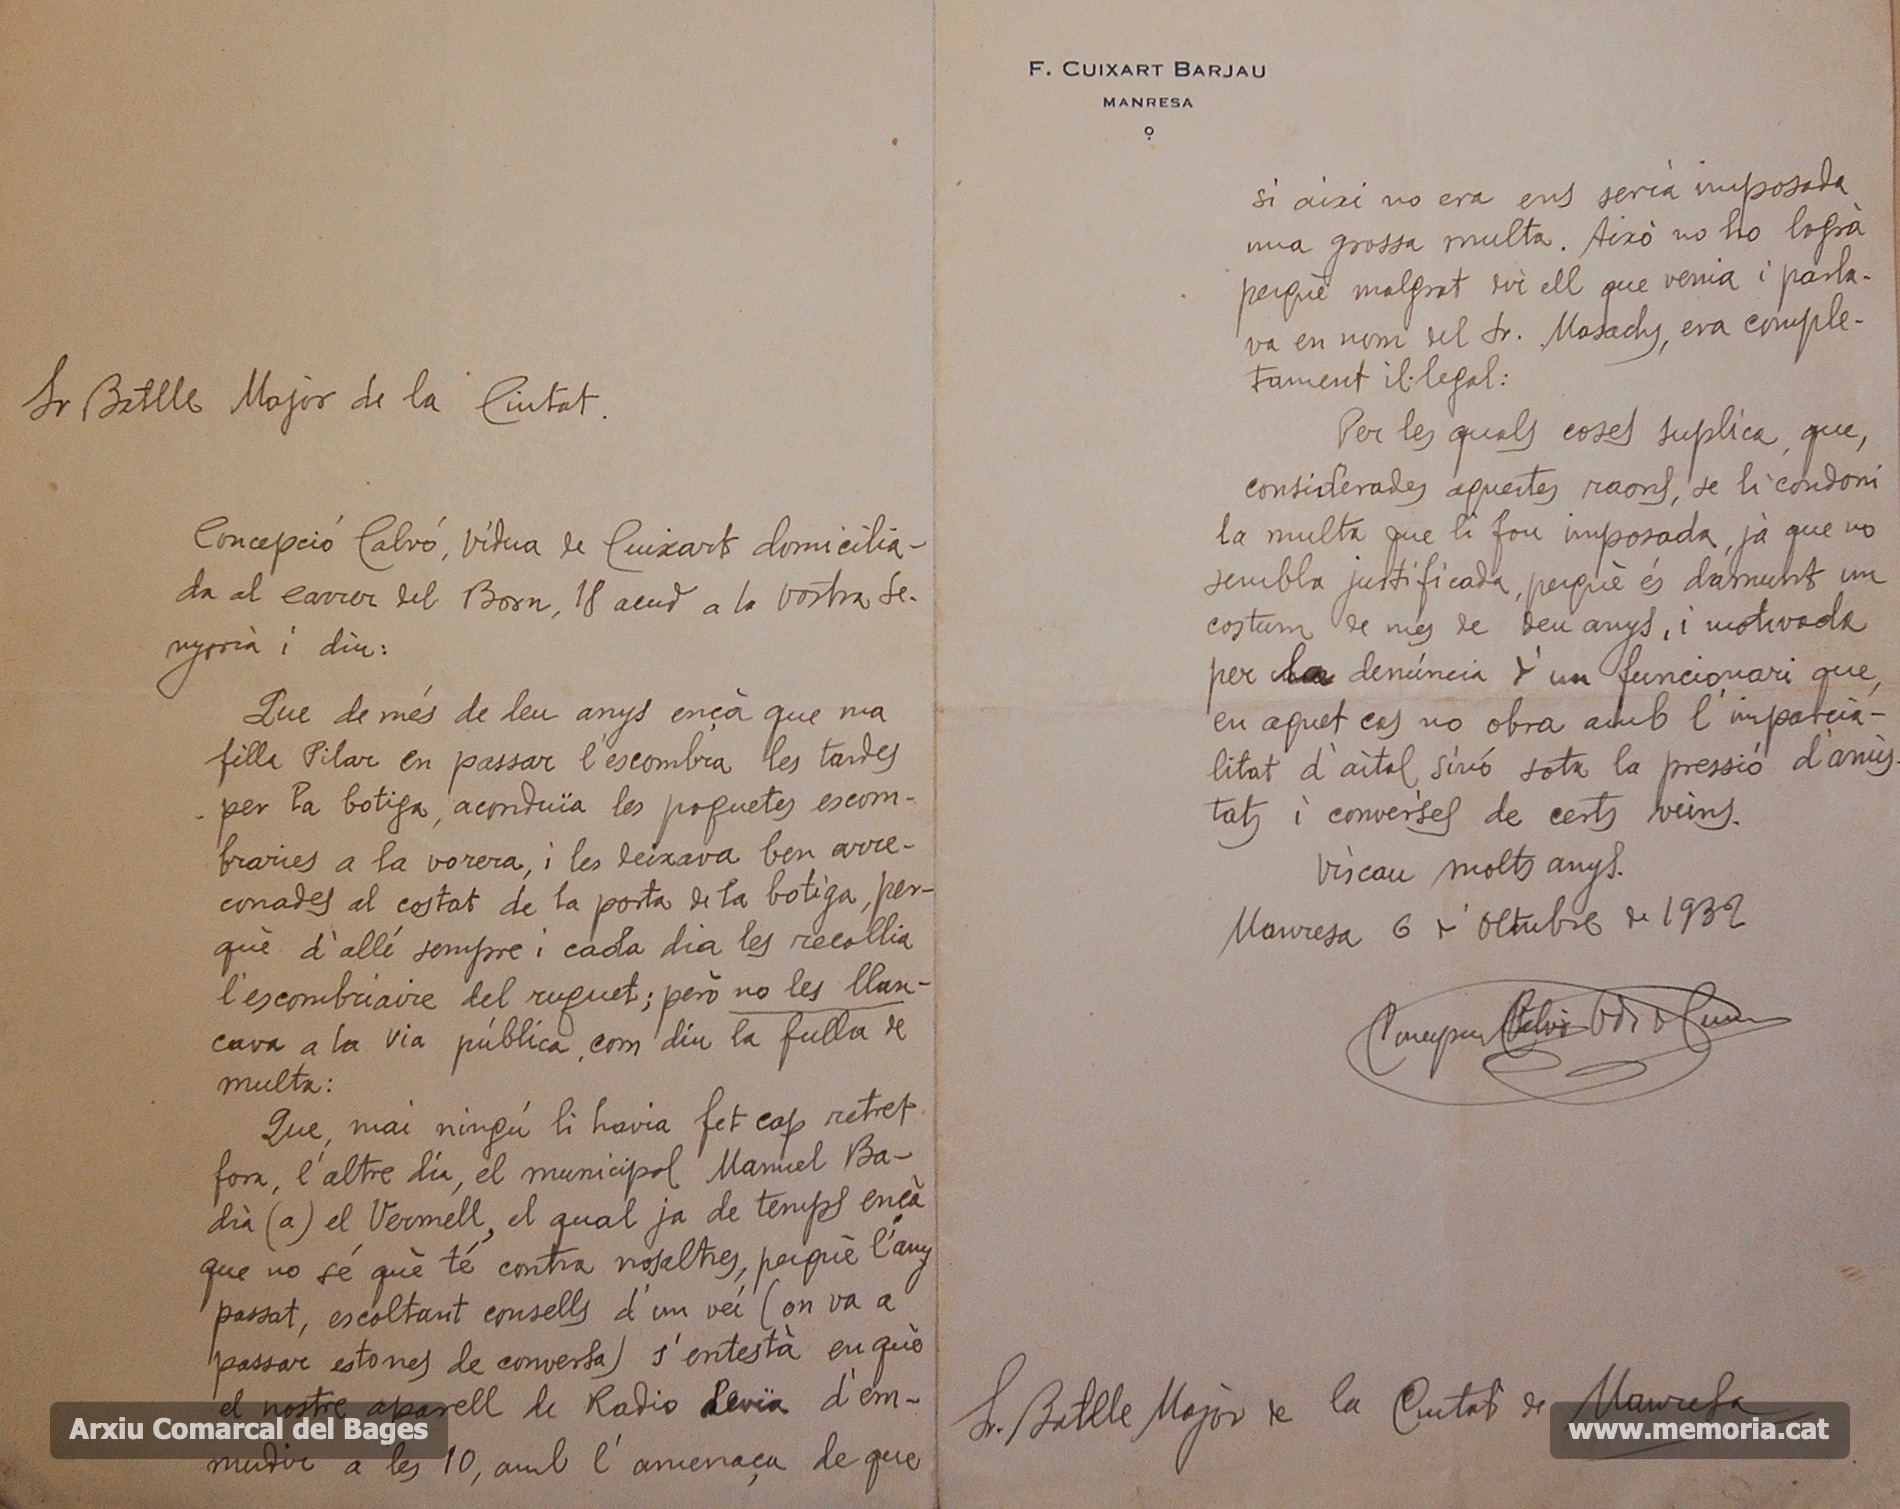 Sr Batlle Major de la Ciutat.
Concepció Calvó, vídua de Cuixart domicilia-
da al carrer del Born, 18 acud a la vostra Se-
nyoria i diu:
Que de més de deu anys ençà que ma
filla Pilar en passar l'escombra les tardes
per la botiga, aconduïa les poquetes escom-
braries a la vorera, i les deixava ben arre-
conades al costat de la porta de la botiga, per-
què d'allé sempre i cada dia les recollia
l'escombriaire del ruquet; però no les llan-
cava a la via pública, com diu la fulla de
multa:
Que, mai ningú li havia fet cap retret
fora, l'altre dia, el municipal Manuel Ba-
dia (a) el Vermell, el qual ja de temps ençà
que no sé què té contra nosaltres, perquè l'any
passat, escoltant consells d'un veí (on va a
passar estones de conversa) s'entestà en què
el nostre aparell de Radio devia d'em-
mudir a les 10, amb l'amenaça de que
F. CUIXART BARJAU
MANRESA
si aixi no era ens seria imposada
una grossa multa. Això no ho logrà
perquè malgrat dir ell que venia i parla-
va en nom del Sr. Masachs, era comple-
tament il·legal:
Per les quals coses suplica, que,
considerades aquestes raons, se li condoni
la multa que li fou imposada, jà que no
sembla justificada, perquè és damunt un
costum de més de deu anys, i motivada
per la denúncia d'un funcionari que,
en aquet cas no obra amb l'imparcia-
litat d'aital, sinó sota la pressió d'amis-
tats i converses de certs veïns.
Viscau molts anys.
Manresa 6 d'Octubre de 1932
Concepció Calvó Vda de Cuixart
Sr. Batlle Major de la Ciutat de Manresa
Arxiu Comarcal del Bages
www.memoria.cat